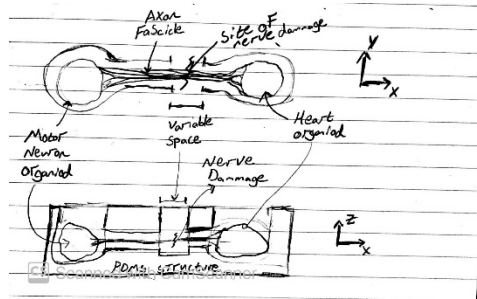 Axon
Fascicle
Site of
nerve damage
y
x
Motor
Neuron
organiod
variable
space
Heart
organiod
Nerve
Dammage
z
x
PDMS structure
CS Scanned with CamScanner